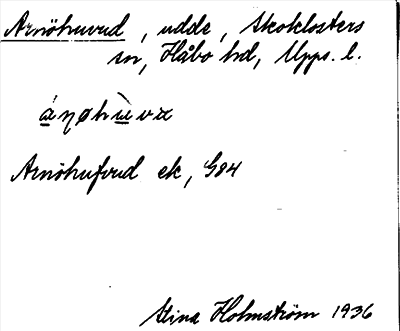 Arnöhuvud, udde, Skoklosters
sn, Håbo hd, Upps. l.
áṇøhùvɑ
Arnöhufvud ek, G84
Stina Holmström 1936